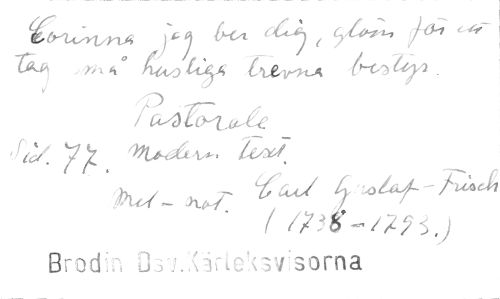 Corinna jag ber dig, glöm för en
tag små husliga trevna bestyr.
Pastorale
Sid. 77. Modern text.
Mel-not. Carl Gustaf-Frisch
(1738-1793.)
Brodin Osv.Kärleksvisorna